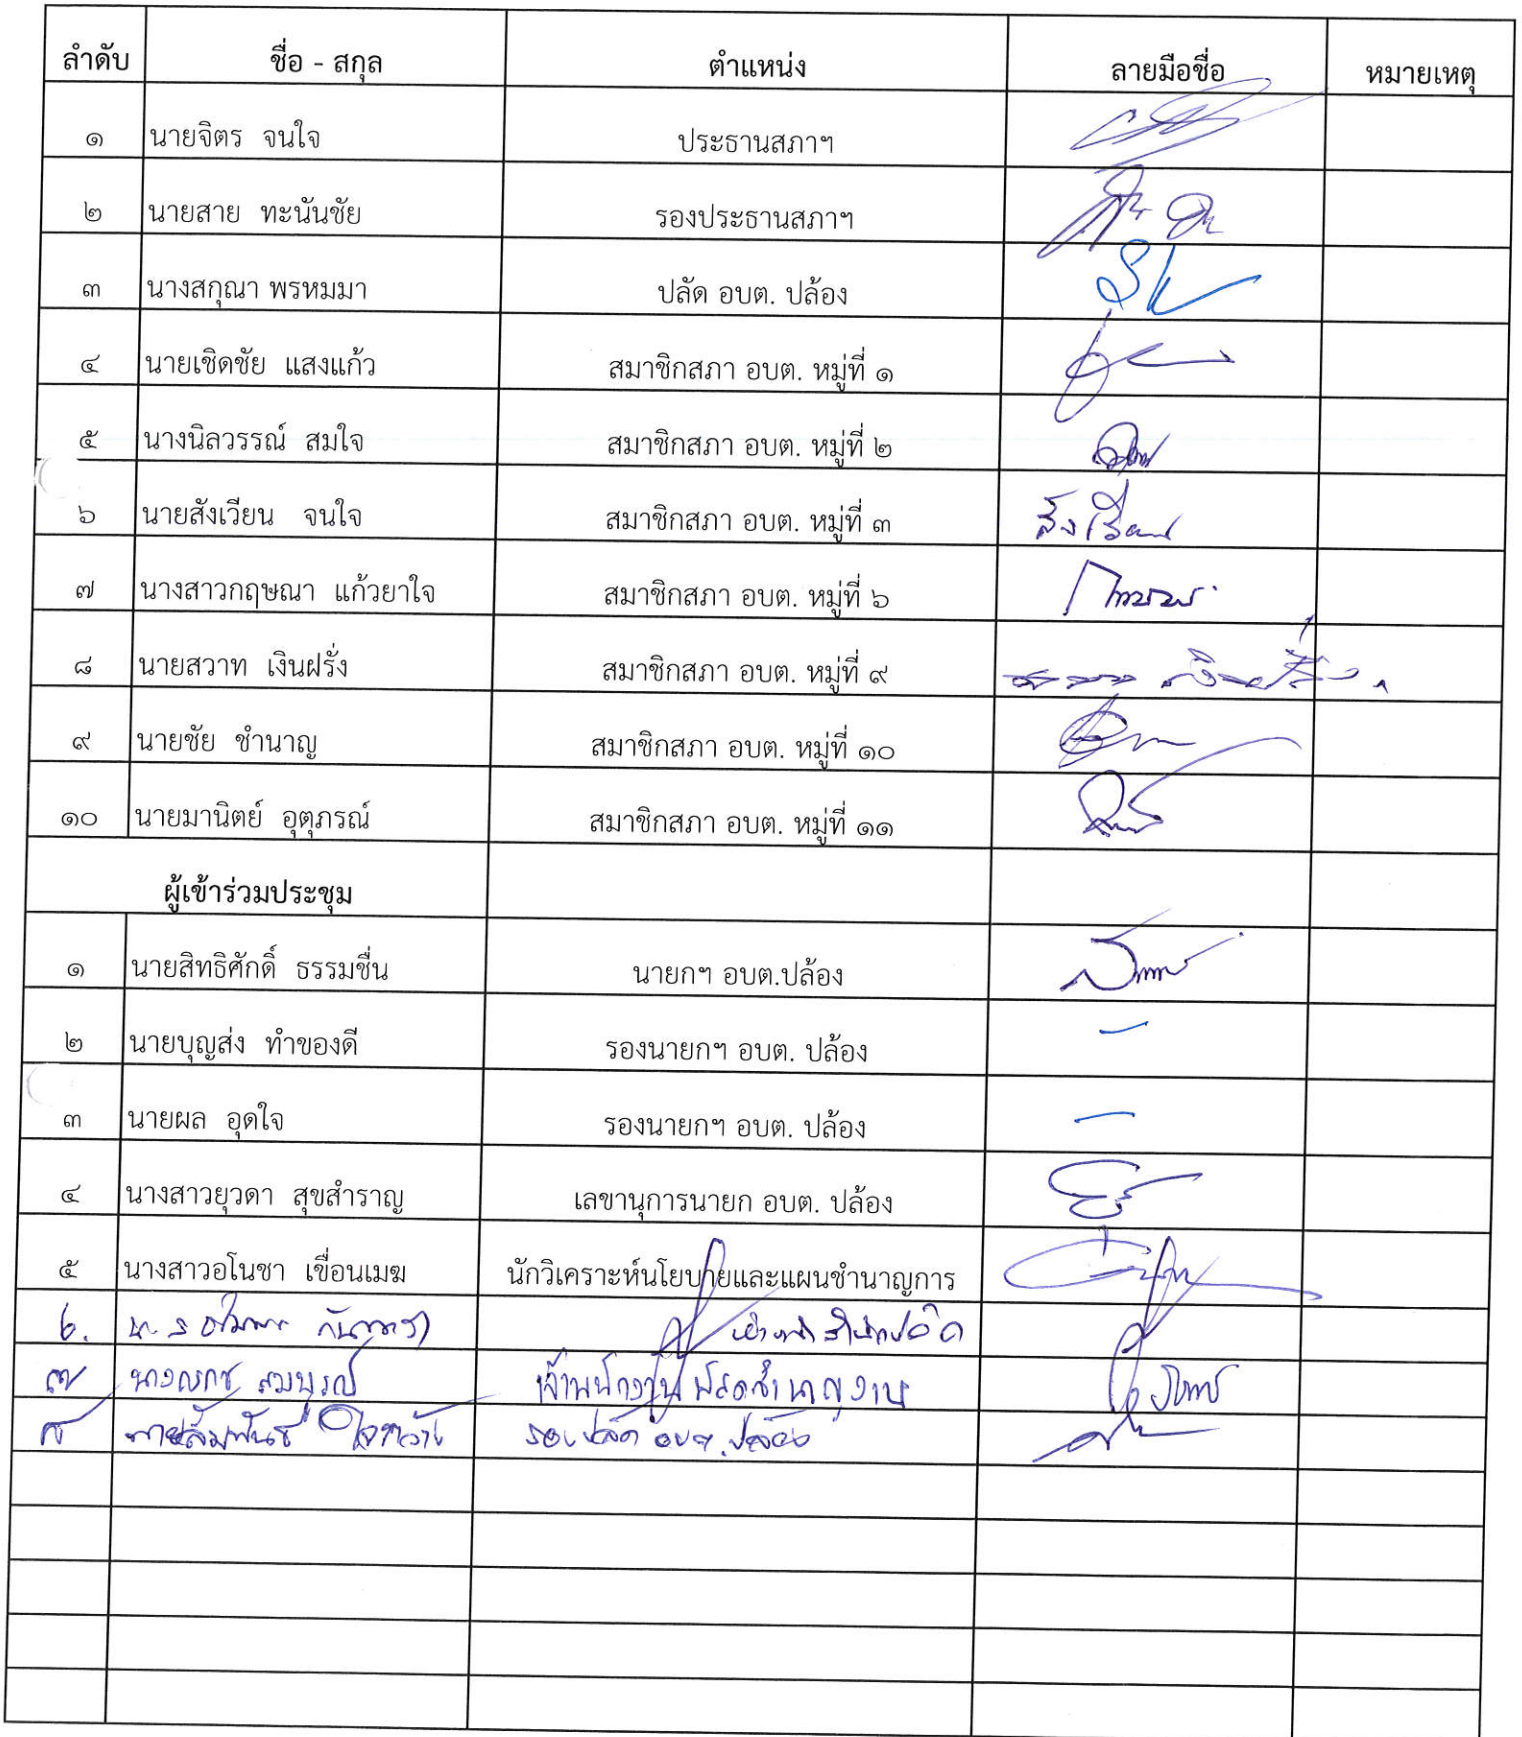 ลำดับ ชื่อ - สกุล ตำแหน่ง ลายมือชื่อ หมายเหตุ
๑ นายจิตร จนใจ ประธานสภาฯ
๒ นายสาย ทะนันชัย รองประธานสภาฯ
๓ นางสกุณา พรหมมา ปลัด อบต. ปล้อง
๔ นายเชิดชัย แสงแก้ว สมาชิกสภา อบต. หมู่ที่ ๑
๕ นางนิลวรรณ์ สมใจ สมาชิกสภา อบต. หมู่ที่ ๒
๖ นายสังเวียน จนใจ สมาชิกสภา อบต. หมู่ที่ ๓ สังเวียน
๗ นางสาวกฤษณา แก้วยาใจ สมาชิกสภา อบต. หมู่ที่ ๖
๘ นายสวาท เงินฝรั่ง สมาชิกสภา อบต. หมู่ที่ ๙
๙ นายชัย ชำนาญ สมาชิกสภา อบต. หมู่ที่ ๑๐
๑๐ นายมานิตย์ อุตุภรณ์ สมาชิกสภา อบต. หมู่ที่ ๑๑
ผู้เข้าร่วมประชุม
๑ นายสิทธิศักดิ์ ธรรมชื่น นายกฯ อบต.ปล้อง
๒ นายบุญส่ง ทำของดี รองนายกฯ อบต. ปล้อง -
๓ นายผล อุดใจ รองนายกฯ อบต. ปล้อง -
๔ นางสาวยุวดา สุขสำราญ เลขานุการนายก อบต. ปล้อง
๕ นางสาวอโนชา เขื่อนเมฆ นักวิเคราะห์นโยบายและแผนชำนาญการ
๖. น.ส หัวหน้าสำนักปลัด
๗ สมบูรณ์ เจ้าพนักงานพัสดุชำนาญงาน
๘ นายสัมพันธ์ ใจกว้าง รองปลัด อบต.ปล้อง